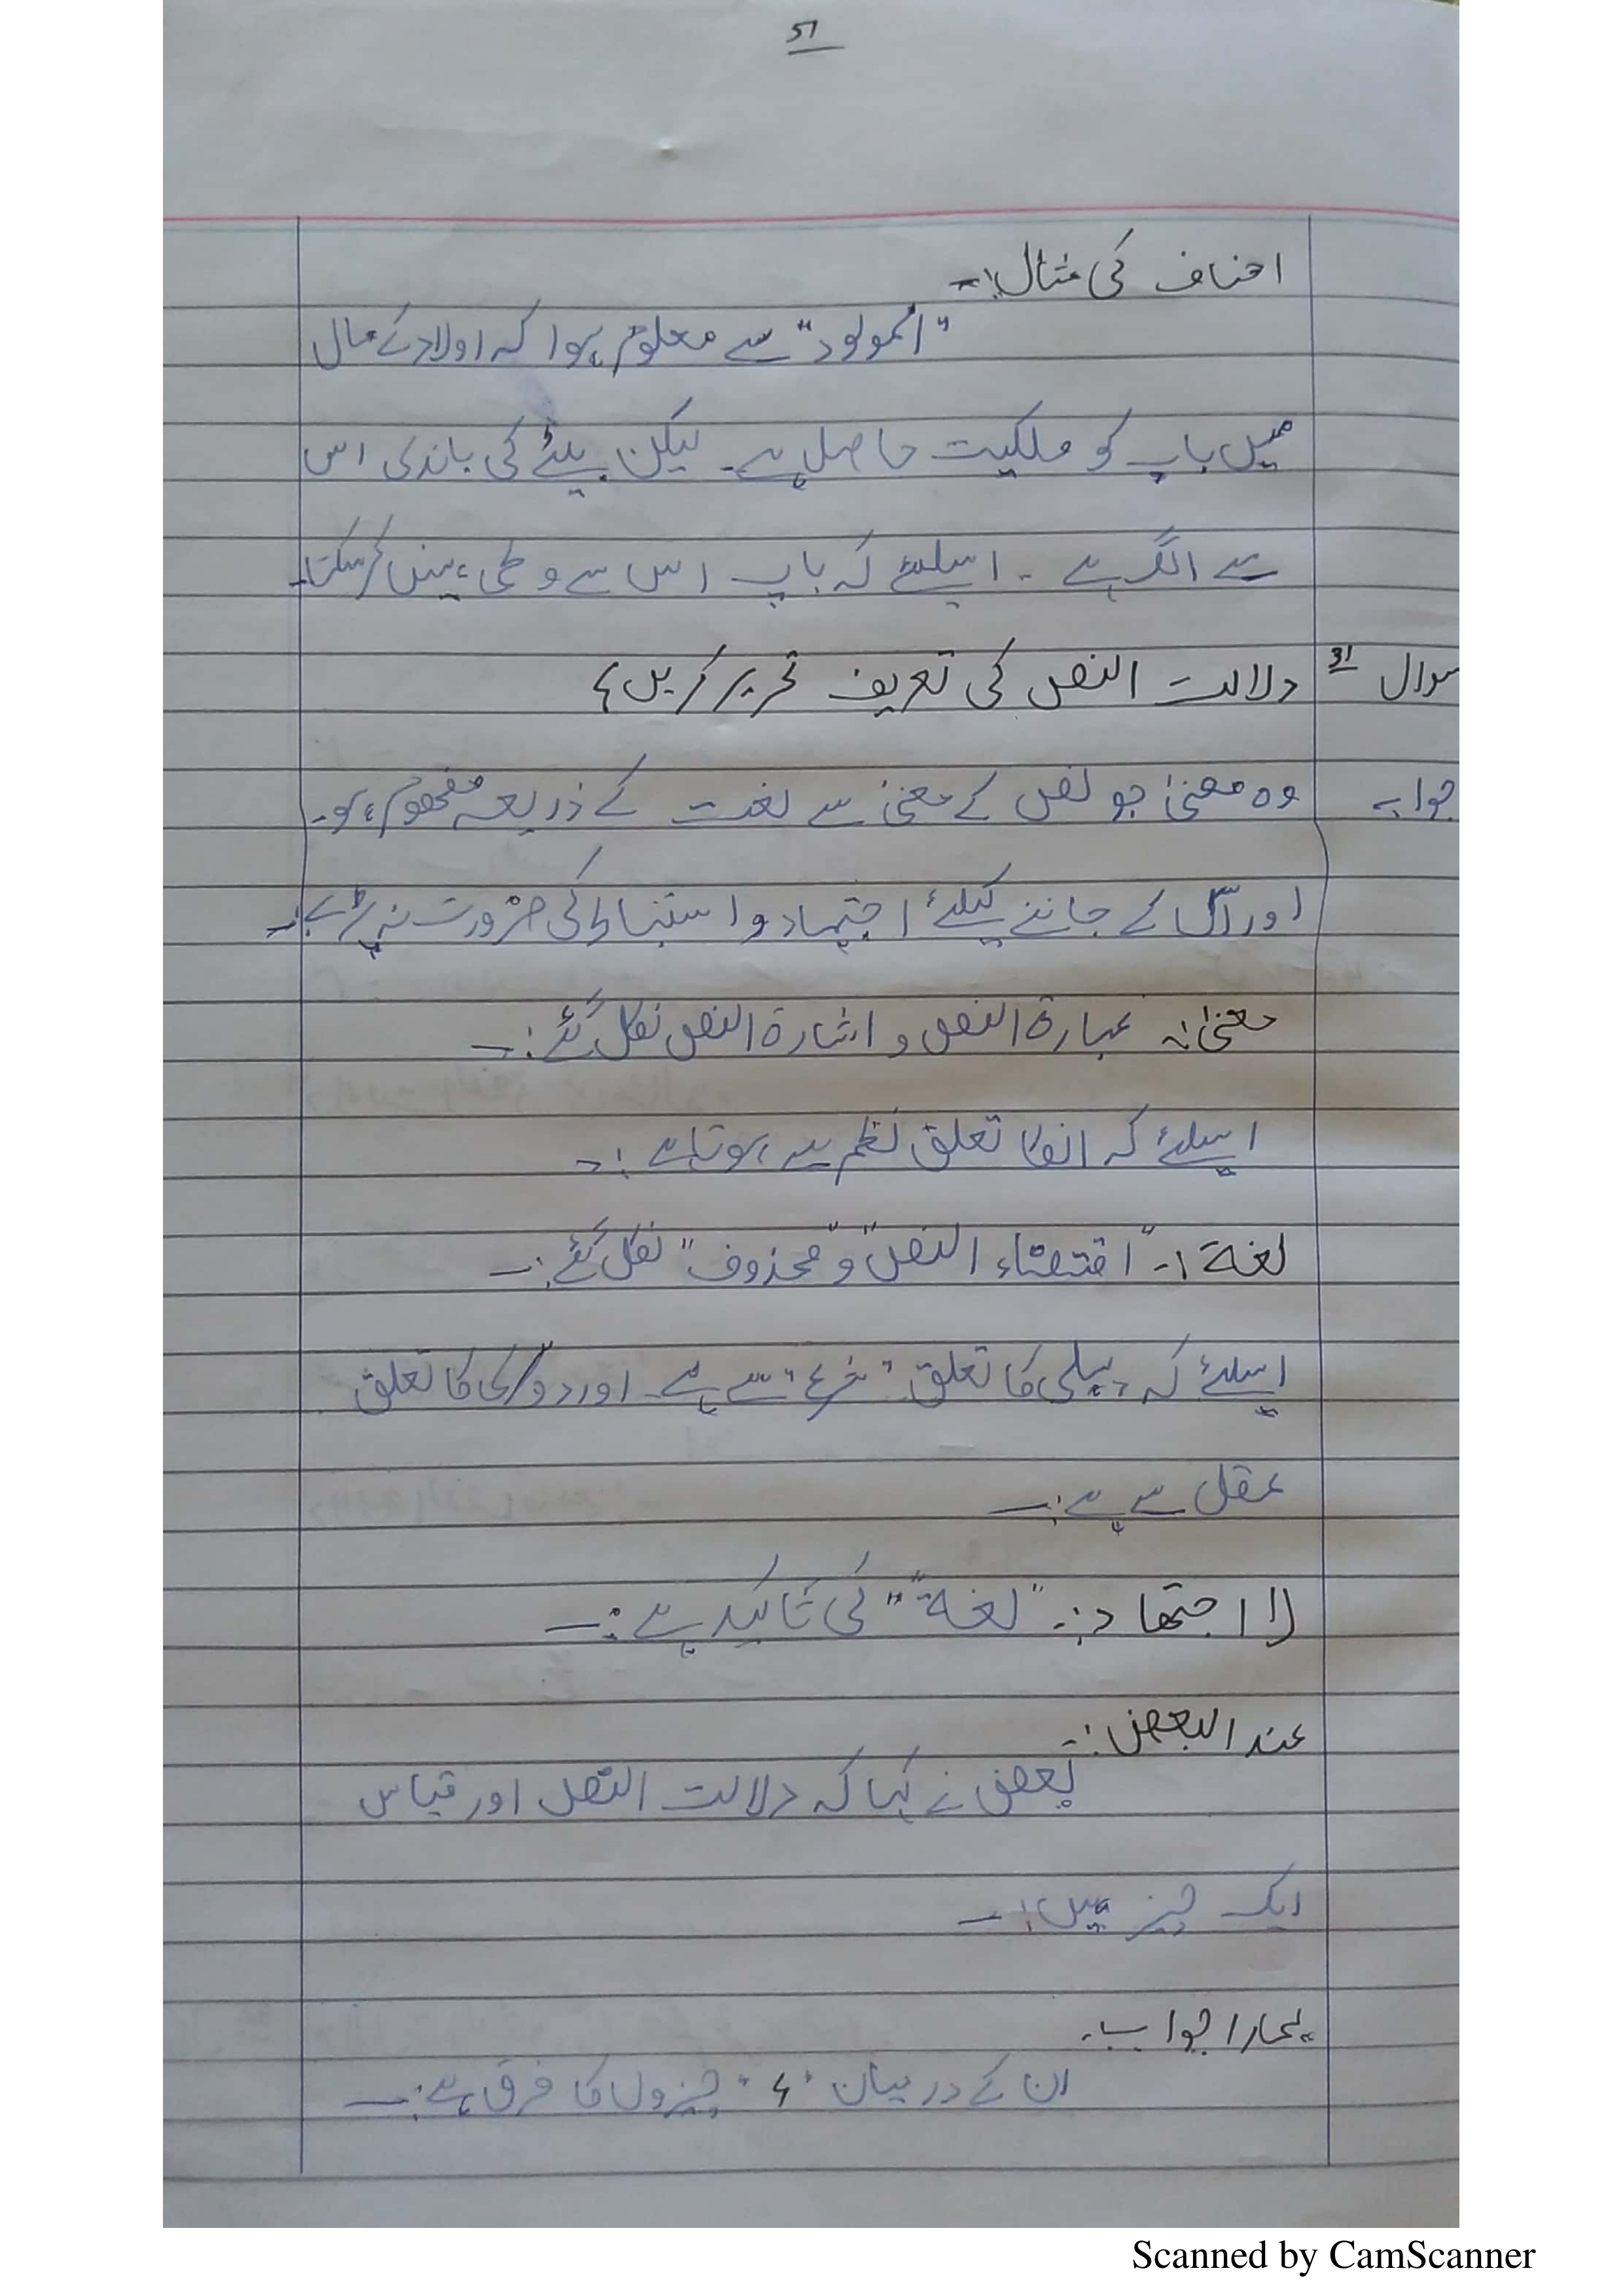 51
احناف کی مثال:-
"المولود" سے معلوم ہوا کہ اولاد کے مال
میں باپ کو ملکیت حاصل ہے۔ لیکن بیٹے کی باندی اس
سے الگ ہے ۔ اسلئے کہ باپ اس سے وطی نہیں کرسکتا۔
سوال 31 دلالت النص کی تعریف تحریر کریں؟
جواب وہ معنیٰ جو نص کے معنیٰ سے لغت کے ذریعہ مفھوم ہو۔
اور اس کے جاننے کیلئے اجتہاد و استنباط کی ضرورت نہ پڑے:-
معنیٰ:۔ عبارۃ النص و اشارۃ النص نکل گئے:-
اسلئے کہ انکا تعلق نظم سے ہوتا ہے :-
لغۃ :- "اقتضاء النص" و "محذوف" نکل گئے:-
اسلئے کہ پہلی کا تعلق "شرع" سے ہے۔ اور دوسری کا تعلق
عقل سے ہے:-
لا اجتھاد:- "لغۃ" کی تاکید ہے:-
عند البعض:-
بعض نے کہا کہ دلالت النص اور قیاس
ایک چیز ہیں:-
ہمارا جواب۔
ان کے درمیان "4" چیزوں کا فرق ہے:-
Scanned by CamScanner